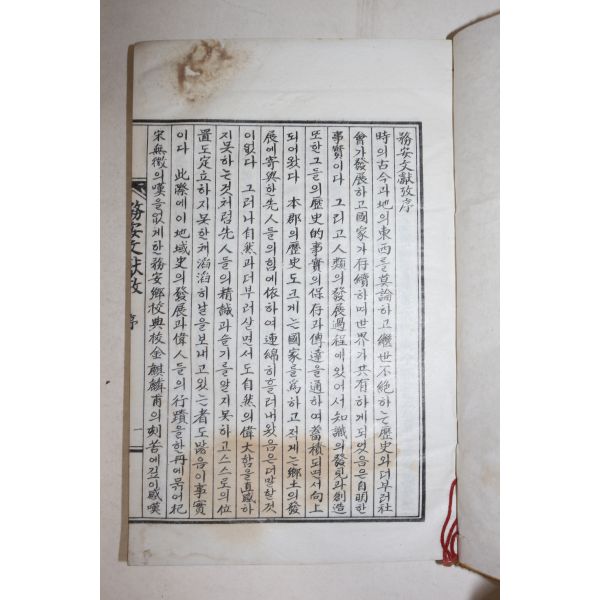 務安文獻攷序
時의古今과地의東西를莫論하고繼世不絶하는歷史와더부러社
會가發展하고國家가存續하며世界가共有하게되었음은自明한
事實이다 그리고人類의發展過程에있어서知識의發見과創造
또한그들의歷史的事實의保存과傳達을通하여蓄積되면서向上
되여왔다 本郡의歷史도크게는國家를爲하고적게는鄕土의發
展에寄與한先人들의힘에依하여連綿히흘러내왔음은더말할것
이없다 그러나自然과더부러살면서도自然의偉大함을直感하
지못하는것처럼先人들의精誠과슬기를알지못하고스스로의位
置도定立하지못한채滔滔히날을보내고있는者도많음이事實
이다 此際에이地域史의發展과偉人들의行蹟을한冊에묶어杞
宋無徵의嘆을없게한務安鄕校典校金麒麟甫의刻苦에깊이感嘆
務安文獻攷 序 一